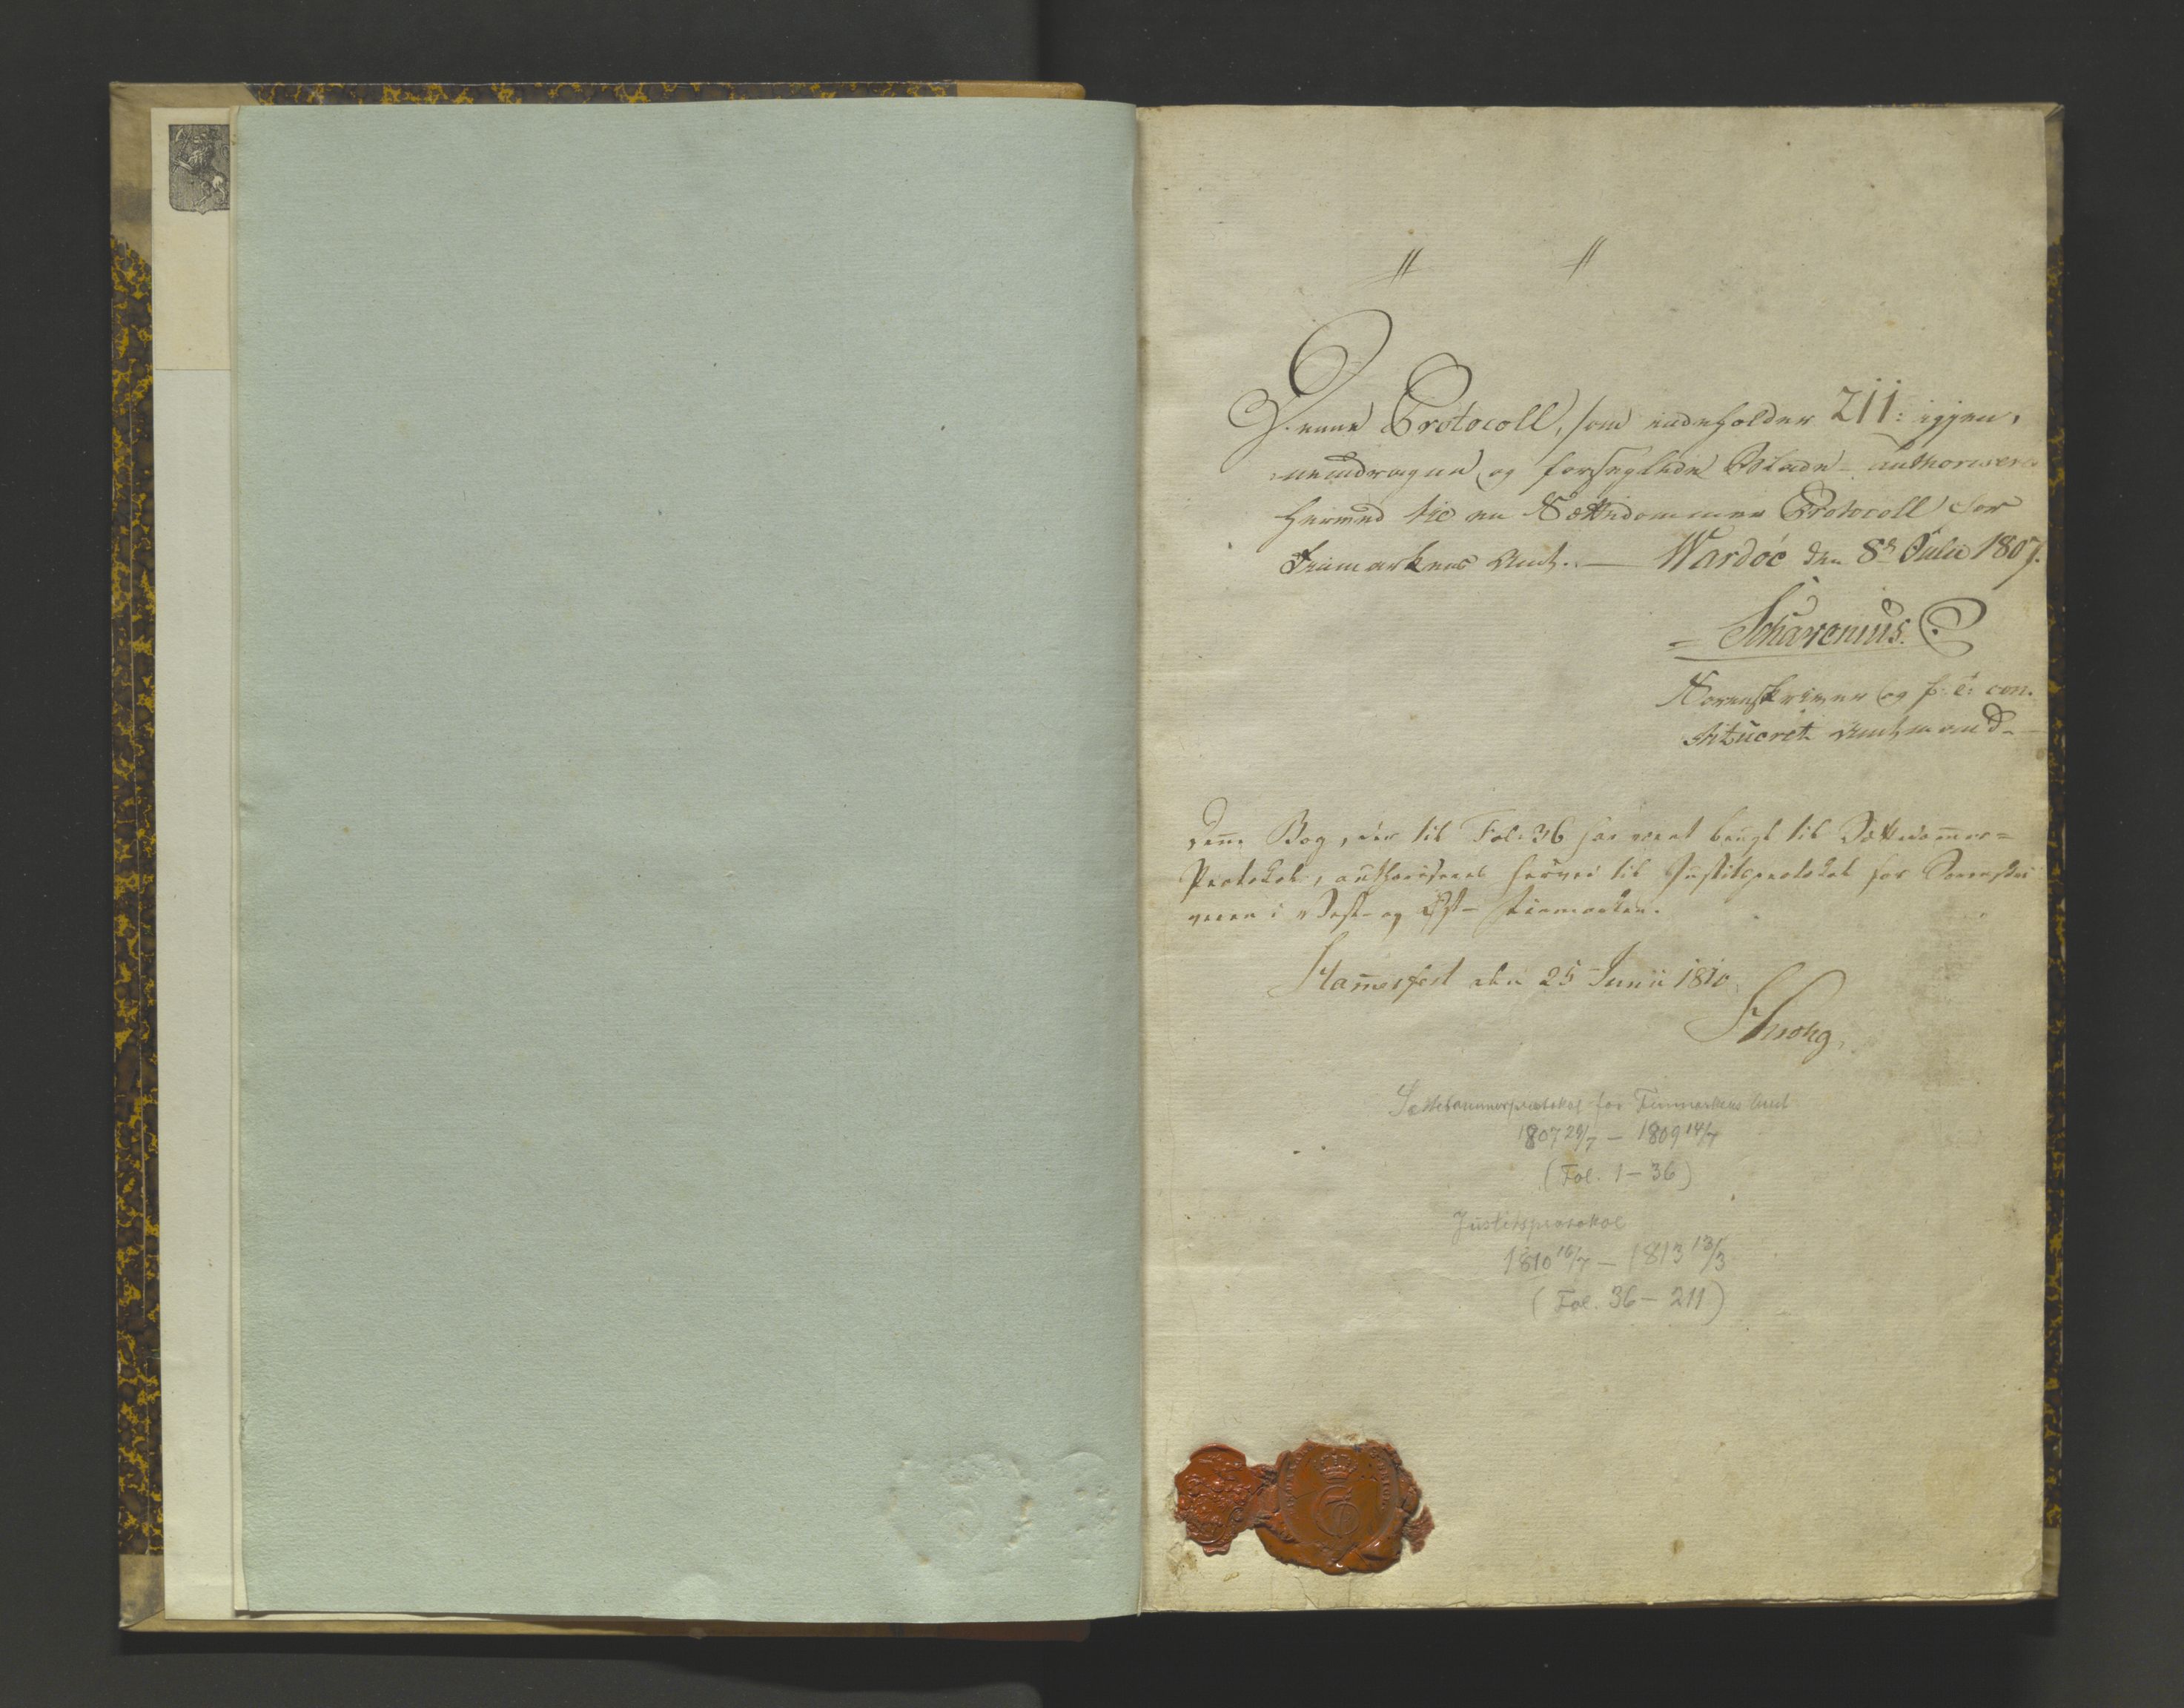 Denne Protocoll, som indeholder 211: igjen,
nemdragne og forseglede Blade authoriseres
hermed til en Sættedommer Protocoll for
Finmarkens Amt. — Wardöe den 8de Julii 1807.
Sorenskriver og f: t: con-
stitueret Amtmand
Denne Bog, der til Fol. 36 har været brugt til Sættedom̄er=
Protokol, authoriseres herved til Justitsprotokol for Sorenskri
veren i Vest- og Øst- Finmarken.
Ham̄erfest den 25 Junii 1810
Krohg
Sættedommerprotokol for Finmarkens Amt
1807 28/7 — 1809 14/7
(Fol. 1-36)
Justitsprotokol
1810 16/7 — 1813 13/3
(Fol. 36-211)